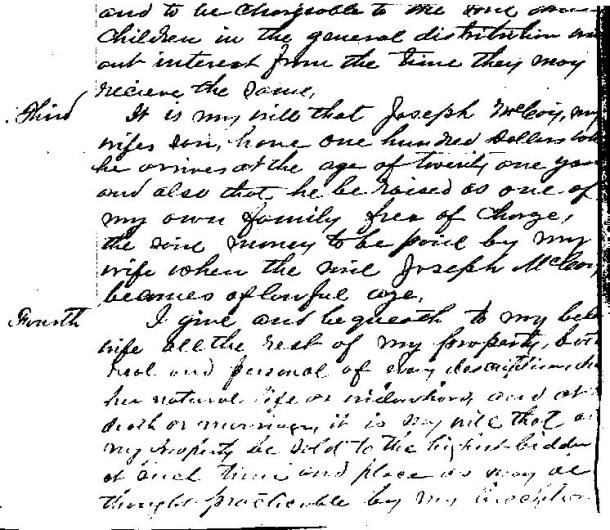 and to be chargeable to the said
children in the general distribution
out interest from the time they may
recieve the same,
Third It is my will that Joseph McCoy, my
wifes son, have one hundred dollars
he arrives at the age of twenty one
and also that he be raised as one of
my own family free of charge,
the said money to be paid by my
wife when the said Joseph McCoy
becomes of lawful age,
Fourth I give and bequeath to my
wife all the rest of my property,
real and personal of every description
her natural life or widowhood, and at
death or marriage, it is my will that
my property be sold to the highest bidder
at such time and place as may be
thought practicable by my